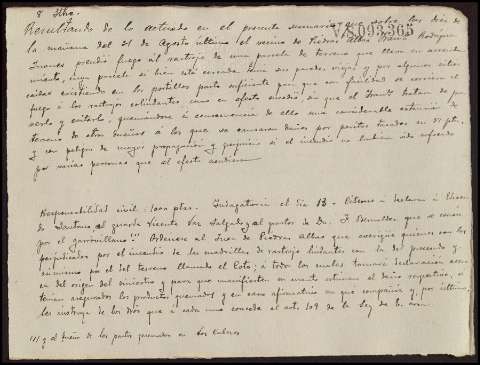 8 Stbre.
V/S.093365
Resultando de lo actuado en el presente sumario que sobre las diez de
la mañana del 21 de Agosto último el vecino de Piedras Albas Bruno Rodríguez
prendió fuego al rastrojo de una parcela de terreno que lleva en arrenda
miento, cuya parcela si bien está cercada tiene sus paredes viejas y por algunos sitios
caidas existiendo en los portillos pasto suficiente para que con facilidad se corriera el
fuego á los rastrojos colindantes, como en efecto sucedió sin que el Bruno tratara de
y evitarlo, quemándose á consecuencia de ello una considerable extensión de
terreno de otros dueños á los que se causaron daños por peritos tasados en
y con peligro de mayor propagación y perjuicio si el incendio no hubiera sido sofocado
por varias personas que al efecto acudieron
Responsabilidad civil: 1000 ptas. Indagatoria el día 13 -
de al guarda Vicente Salgado y al pastor de Dn. F. Bermudez que se
por el (1) Ordenese al Juez de Piedras Albas que averigue quienes son los
perjudicados por el incendio de las de rastrojo lindante con la del procesado y
asimismo por el del terreno llamado el Coto; á todo los cuales tomará declaración acer
ca del origen del siniestro y para que manifiesten en cuanto estiman el daño respectivo, si
tenían asegurados los productos quemados y en caso afirmativo en qué compañía y, por último,
les instruya de los dros que á cada uno concede el art. 109 de la ley de
(1) y al dueño de los pastos quemados en